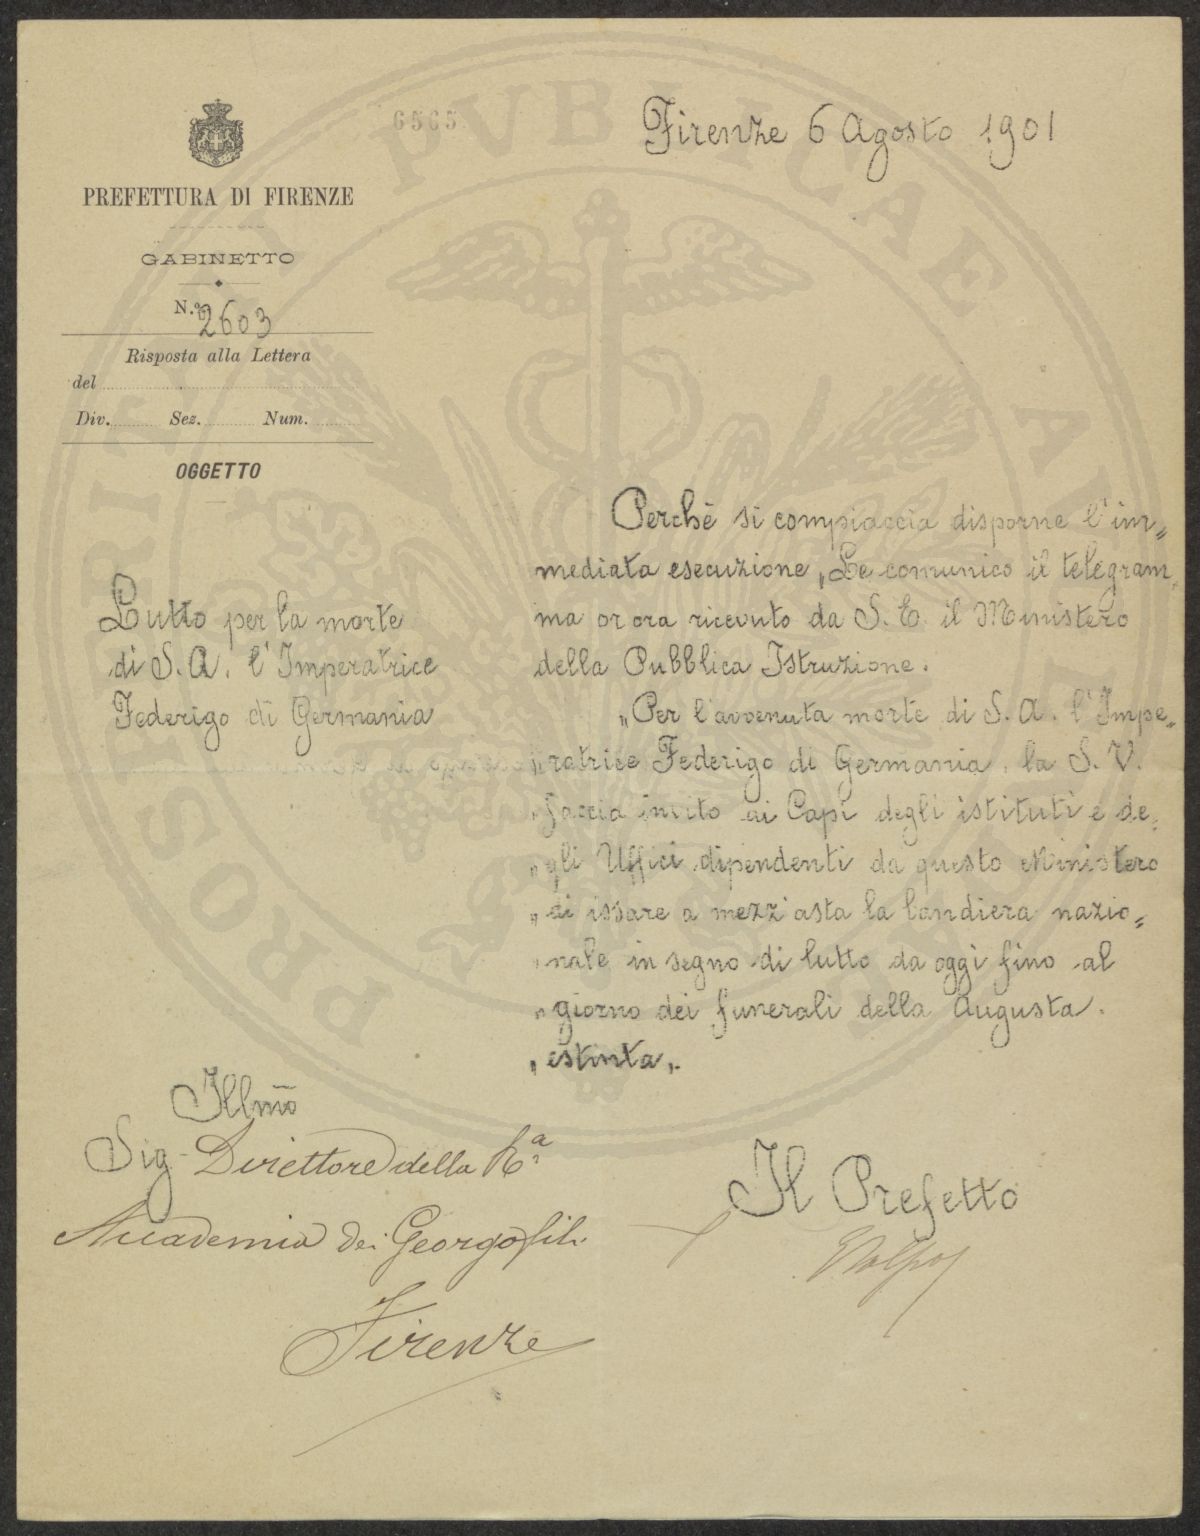 6565
Firenze 6 Agosto 1901
PREFETTURA DI FIRENZE
GABINETTO
N.° 2603
Risposta alla Lettera
del
Div. Sez. Num.
OGGETTO
Lutto per la morte
di S. A. l'Imperatrice
Federigo di Germania
Perchè si compiaccia disporne l'im„
mediata esecuzione, Le comunico il telegram„
ma or ora ricevuto da S. E. il Ministero
della Pubblica Istruzione.
„Per l'avvenuta morte di S. A. l'Impe„
„ratrice Federigo di Germania, la S. V.
„faccia invito ai Capi degli istituti e de„
„gli Uffici dipendenti da questo Ministero
„di issare a mezz'asta la bandiera nazio„
„nale in segno di lutto da oggi fino al
„giorno dei funerali della Augusta
„estinta„.
Illmo
Sig. Direttore della Ra
Accademia dei Georgofili
Firenze
Il Prefetto
PROSPERITATI PUBLICAE AUGENDAE